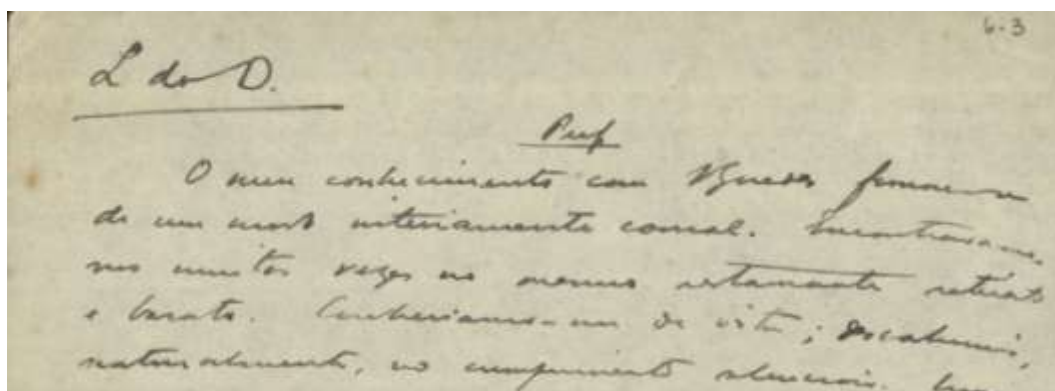 6-3
L do D.
Pref
O meu conhecimento com Vicente Guedes formou-se
de um modo inteiramente casual. Encontravamo-
nos muitas vezes no mesmo restaurante retirado
e barato. Conheciamo-nos de vista; descahimos,
naturalmente, no cumprimento silencioso.